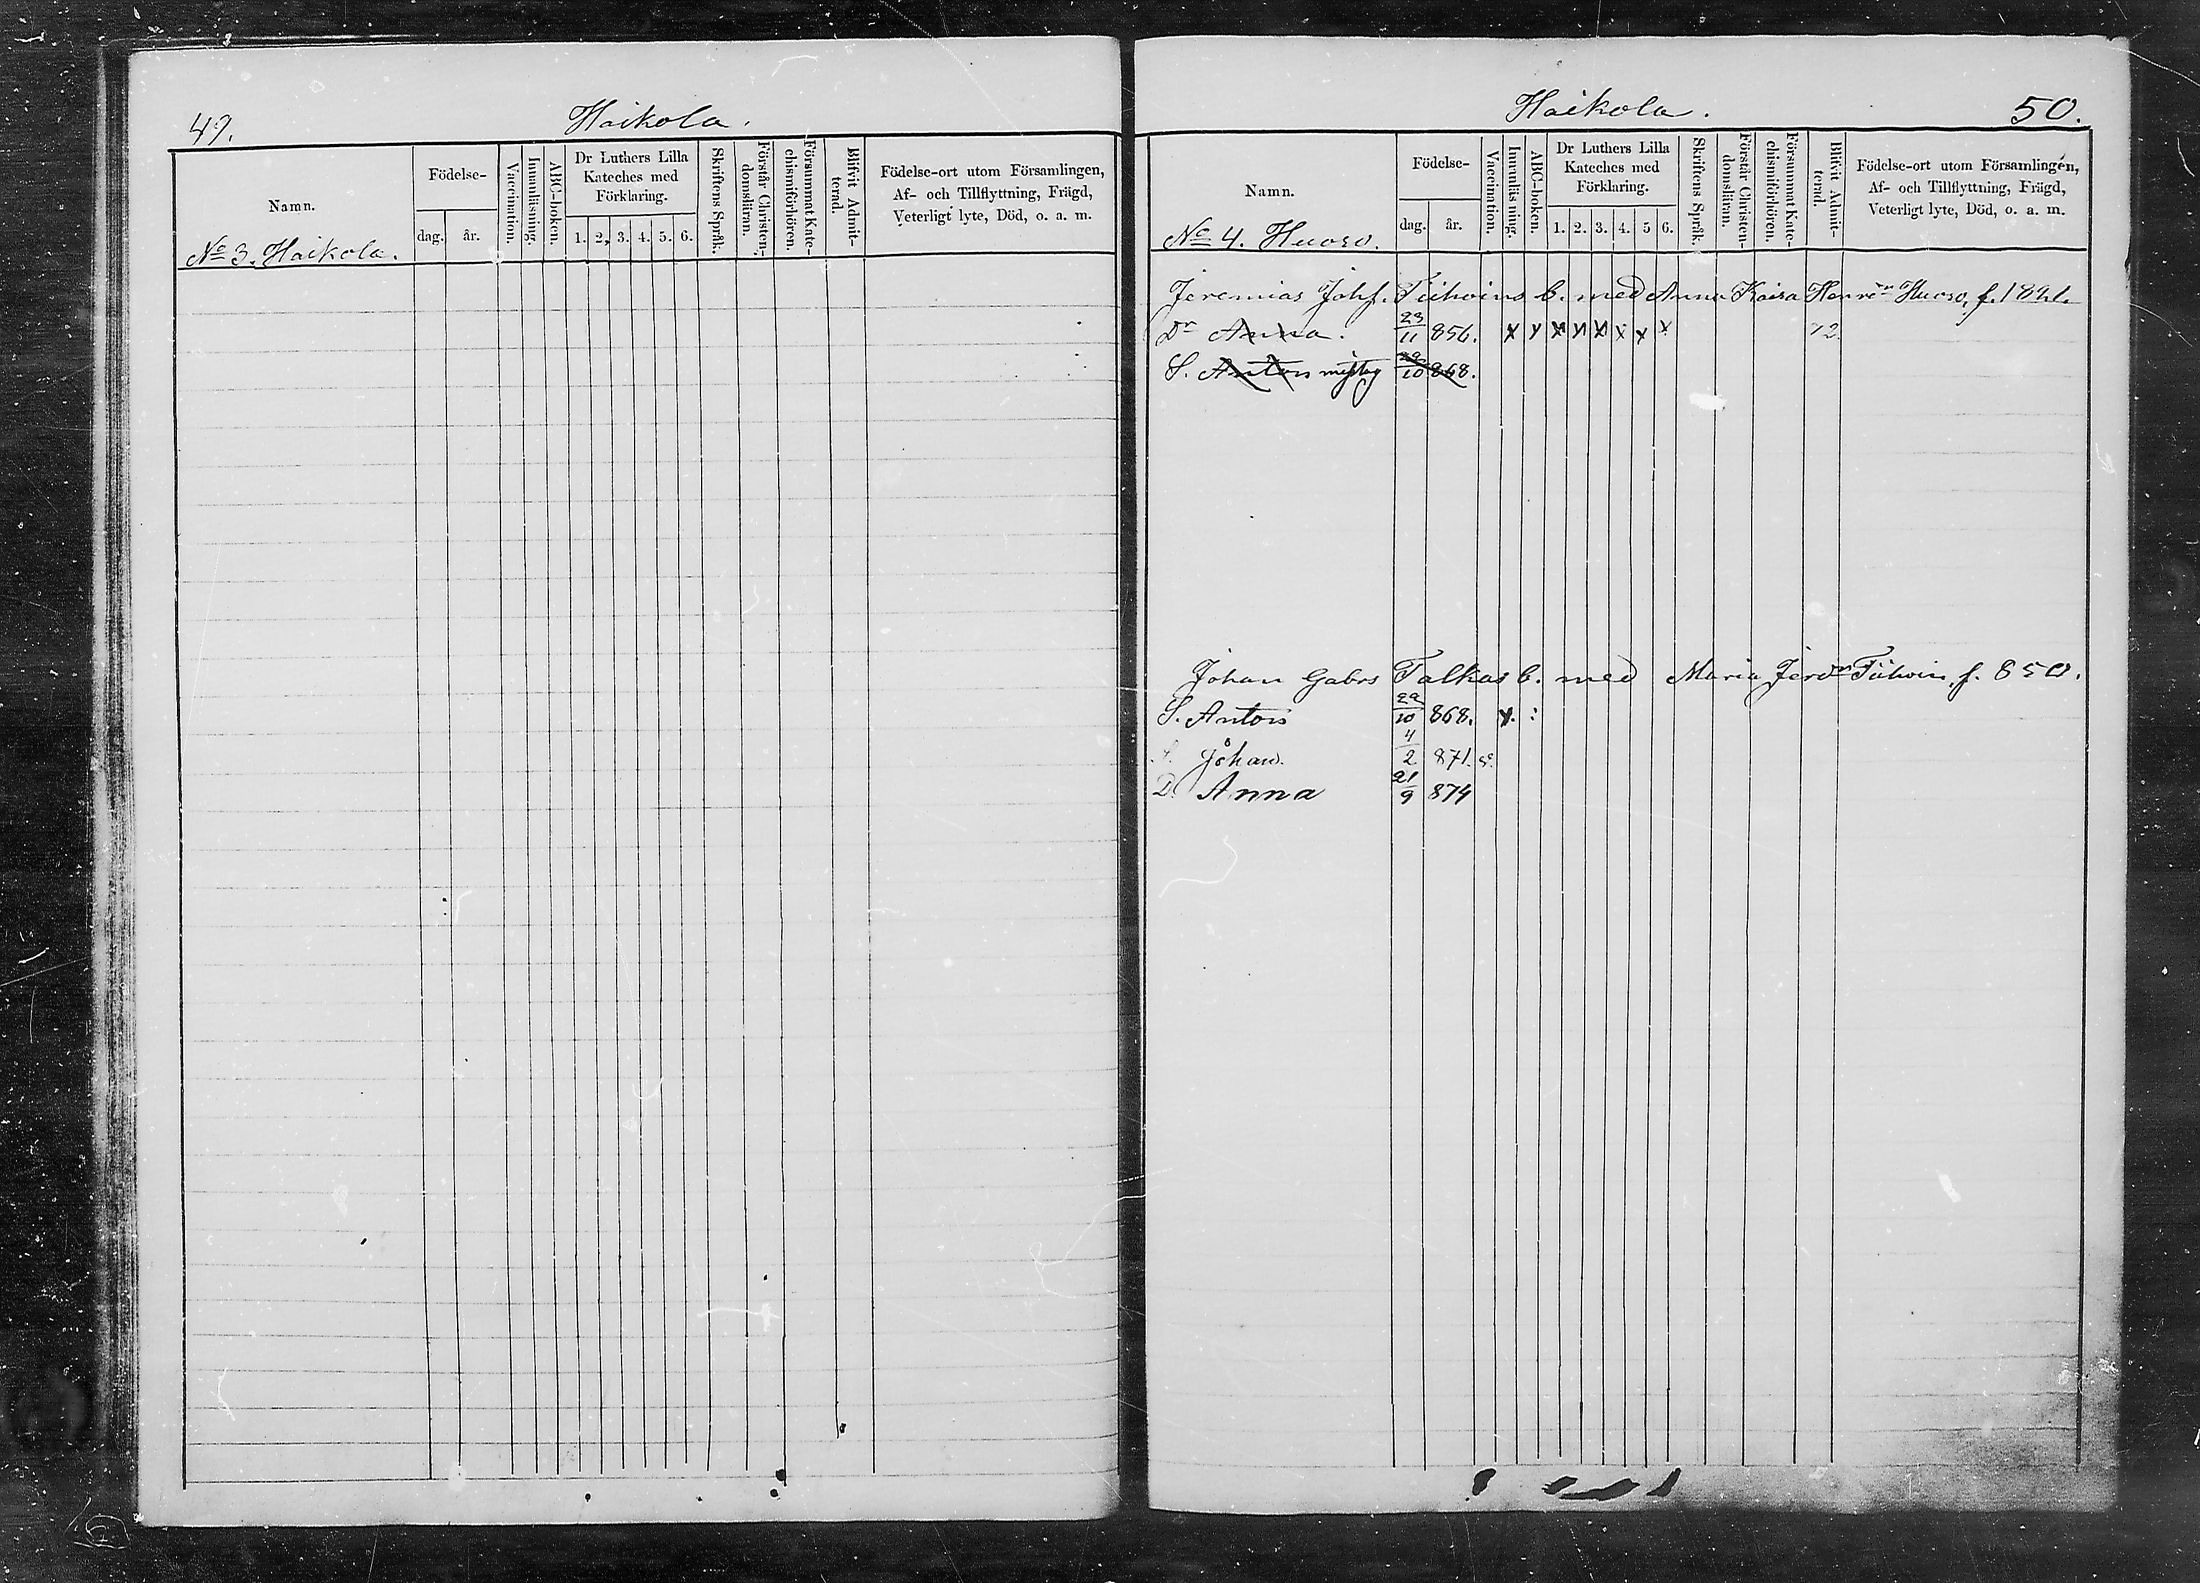 49.
Haikola.
Namn.
Födelse-
dag. år.
Vaccination.
Innanläsning.
ABC-boken.
Dr Luthers Lilla
Kateches med
Förklaring.
1. 2, 3. 4. 5. 6.
Skriftens Språk.
Förstår Christen-
domsläran.
Försummat Kate-
chismiförhören.
Blifvit Admit-
terad.
Födelse-ort utom Församlingen,
Af- och Tillflyttning, Frägd,
Veterligt lyte, Död, o. a. m.
No 3. Haikola.
Haikola.
50.
Namn.
Födelse-
dag. år.
Vaccination.
Innanläsning.
ABC-boken.
Dr Luthers Lilla
Kateches med
Förklaring.
1. 2. 3. 4. 5 6.
Skriftens Språk.
Förstår Christen-
domsläran.
Försummat Kate-
chismiförhören.
Blifvit Admit-
terad.
Födelse-ort utom Församlingen,
Af- och Tillflyttning, Frägd,
Veterligt lyte, Död, o. a. m.
No 4. Huoso.
Jeremias Johs. Tiihoins b. med Anna Kaisa Huoso, f. 1821.
Dr Anna. 23/11 856. x x x x x x x x 72
S. Anton 29/10 868.
Johan Gabrs Talkas b. med Maria Tiihoin, f. 850.
S. Anton 29/10 868. x. :
S. Johan. 4/2 871.
D. Anna 21/9 874